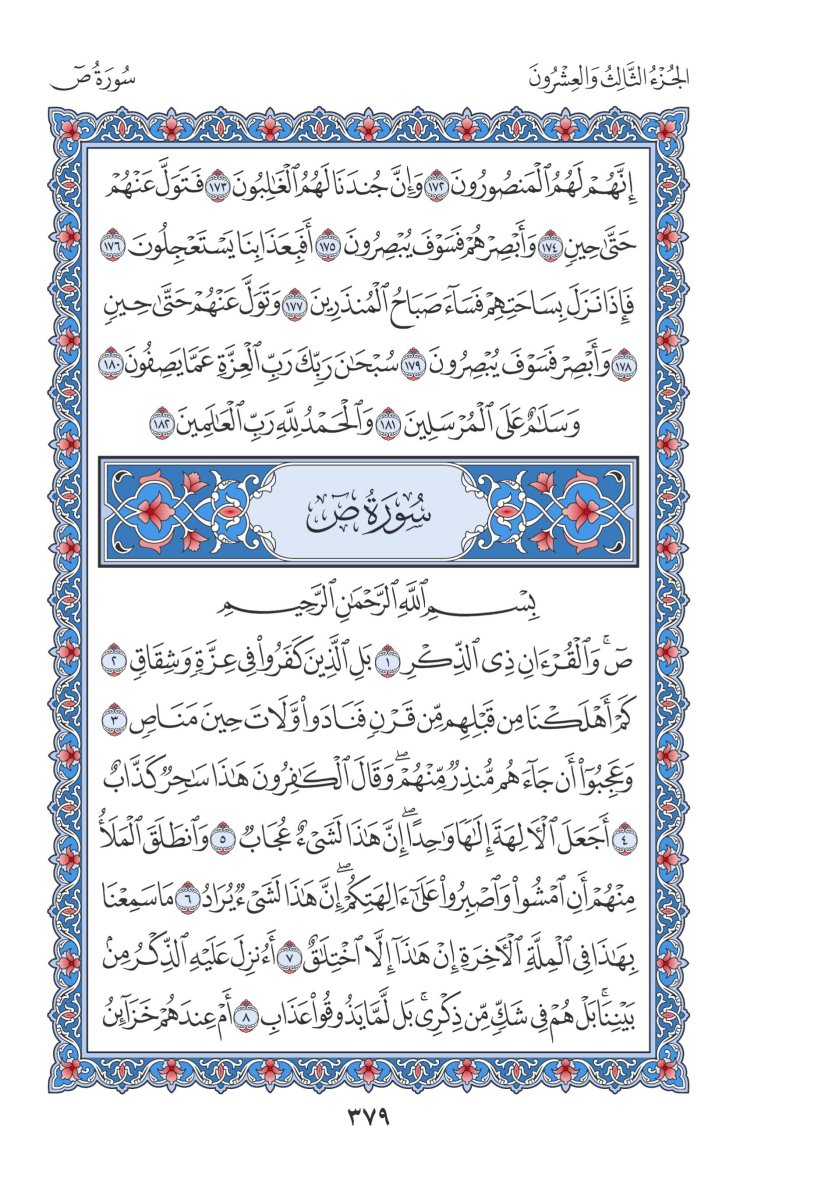 الجُزْءُ الثَّالِثُ وَالعِشْرُونَ
سُورَةُ صٓ
إِنَّهُمْ لَهُمُ ٱلْمَنصُورُونَ ١٧٢ وَإِنَّ جُندَنَا لَهُمُ ٱلْغَٰلِبُونَ ١٧٣ فَتَوَلَّ عَنْهُمْ
حَتَّىٰ حِينٍ ١٧٤ وَأَبْصِرْهُمْ فَسَوْفَ يُبْصِرُونَ ١٧٥ أَفَبِعَذَابِنَا يَسْتَعْجِلُونَ ١٧٦
فَإِذَا نَزَلَ بِسَاحَتِهِمْ فَسَآءَ صَبَاحُ ٱلْمُنذَرِينَ ١٧٧ وَتَوَلَّ عَنْهُمْ حَتَّىٰ حِينٍ
١٧٨ وَأَبْصِرْ فَسَوْفَ يُبْصِرُونَ ١٧٩ سُبْحَٰنَ رَبِّكَ رَبِّ ٱلْعِزَّةِ عَمَّا يَصِفُونَ ١٨٠
وَسَلَٰمٌ عَلَى ٱلْمُرْسَلِينَ ١٨١ وَٱلْحَمْدُ لِلَّهِ رَبِّ ٱلْعَٰلَمِينَ ١٨٢
سُورَةُ صٓ
بِسْمِ ٱللَّهِ ٱلرَّحْمَٰنِ ٱلرَّحِيمِ
صٓ ۚ وَٱلْقُرْءَانِ ذِى ٱلذِّكْرِ ١ بَلِ ٱلَّذِينَ كَفَرُوا۟ فِى عِزَّةٍ وَشِقَاقٍ ٢
كَمْ أَهْلَكْنَا مِن قَبْلِهِم مِّن قَرْنٍ فَنَادَوا۟ وَّلَاتَ حِينَ مَنَاصٍ ٣
وَعَجِبُوٓا۟ أَن جَآءَهُم مُّنذِرٌ مِّنْهُمْ ۖ وَقَالَ ٱلْكَٰفِرُونَ هَٰذَا سَٰحِرٌ كَذَّابٌ
٤ أَجَعَلَ ٱلْءَالِهَةَ إِلَٰهًا وَٰحِدًا ۖ إِنَّ هَٰذَا لَشَىْءٌ عُجَابٌ ٥ وَٱنطَلَقَ ٱلْمَلَأُ
مِنْهُمْ أَنِ ٱمْشُوا۟ وَٱصْبِرُوا۟ عَلَىٰٓ ءَالِهَتِكُمْ ۖ إِنَّ هَٰذَا لَشَىْءٌ يُرَادُ ٦ مَا سَمِعْنَا
بِهَٰذَا فِى ٱلْمِلَّةِ ٱلْءَاخِرَةِ إِنْ هَٰذَآ إِلَّا ٱخْتِلَٰقٌ ٧ أَءُنزِلَ عَلَيْهِ ٱلذِّكْرُ مِنۢ
بَيْنِنَا ۚ بَلْ هُمْ فِى شَكٍّ مِّن ذِكْرِى ۚ بَل لَّمَّا يَذُوقُوا۟ عَذَابِ ٨ أَمْ عِندَهُمْ خَزَآئِنُ
٣٧٩